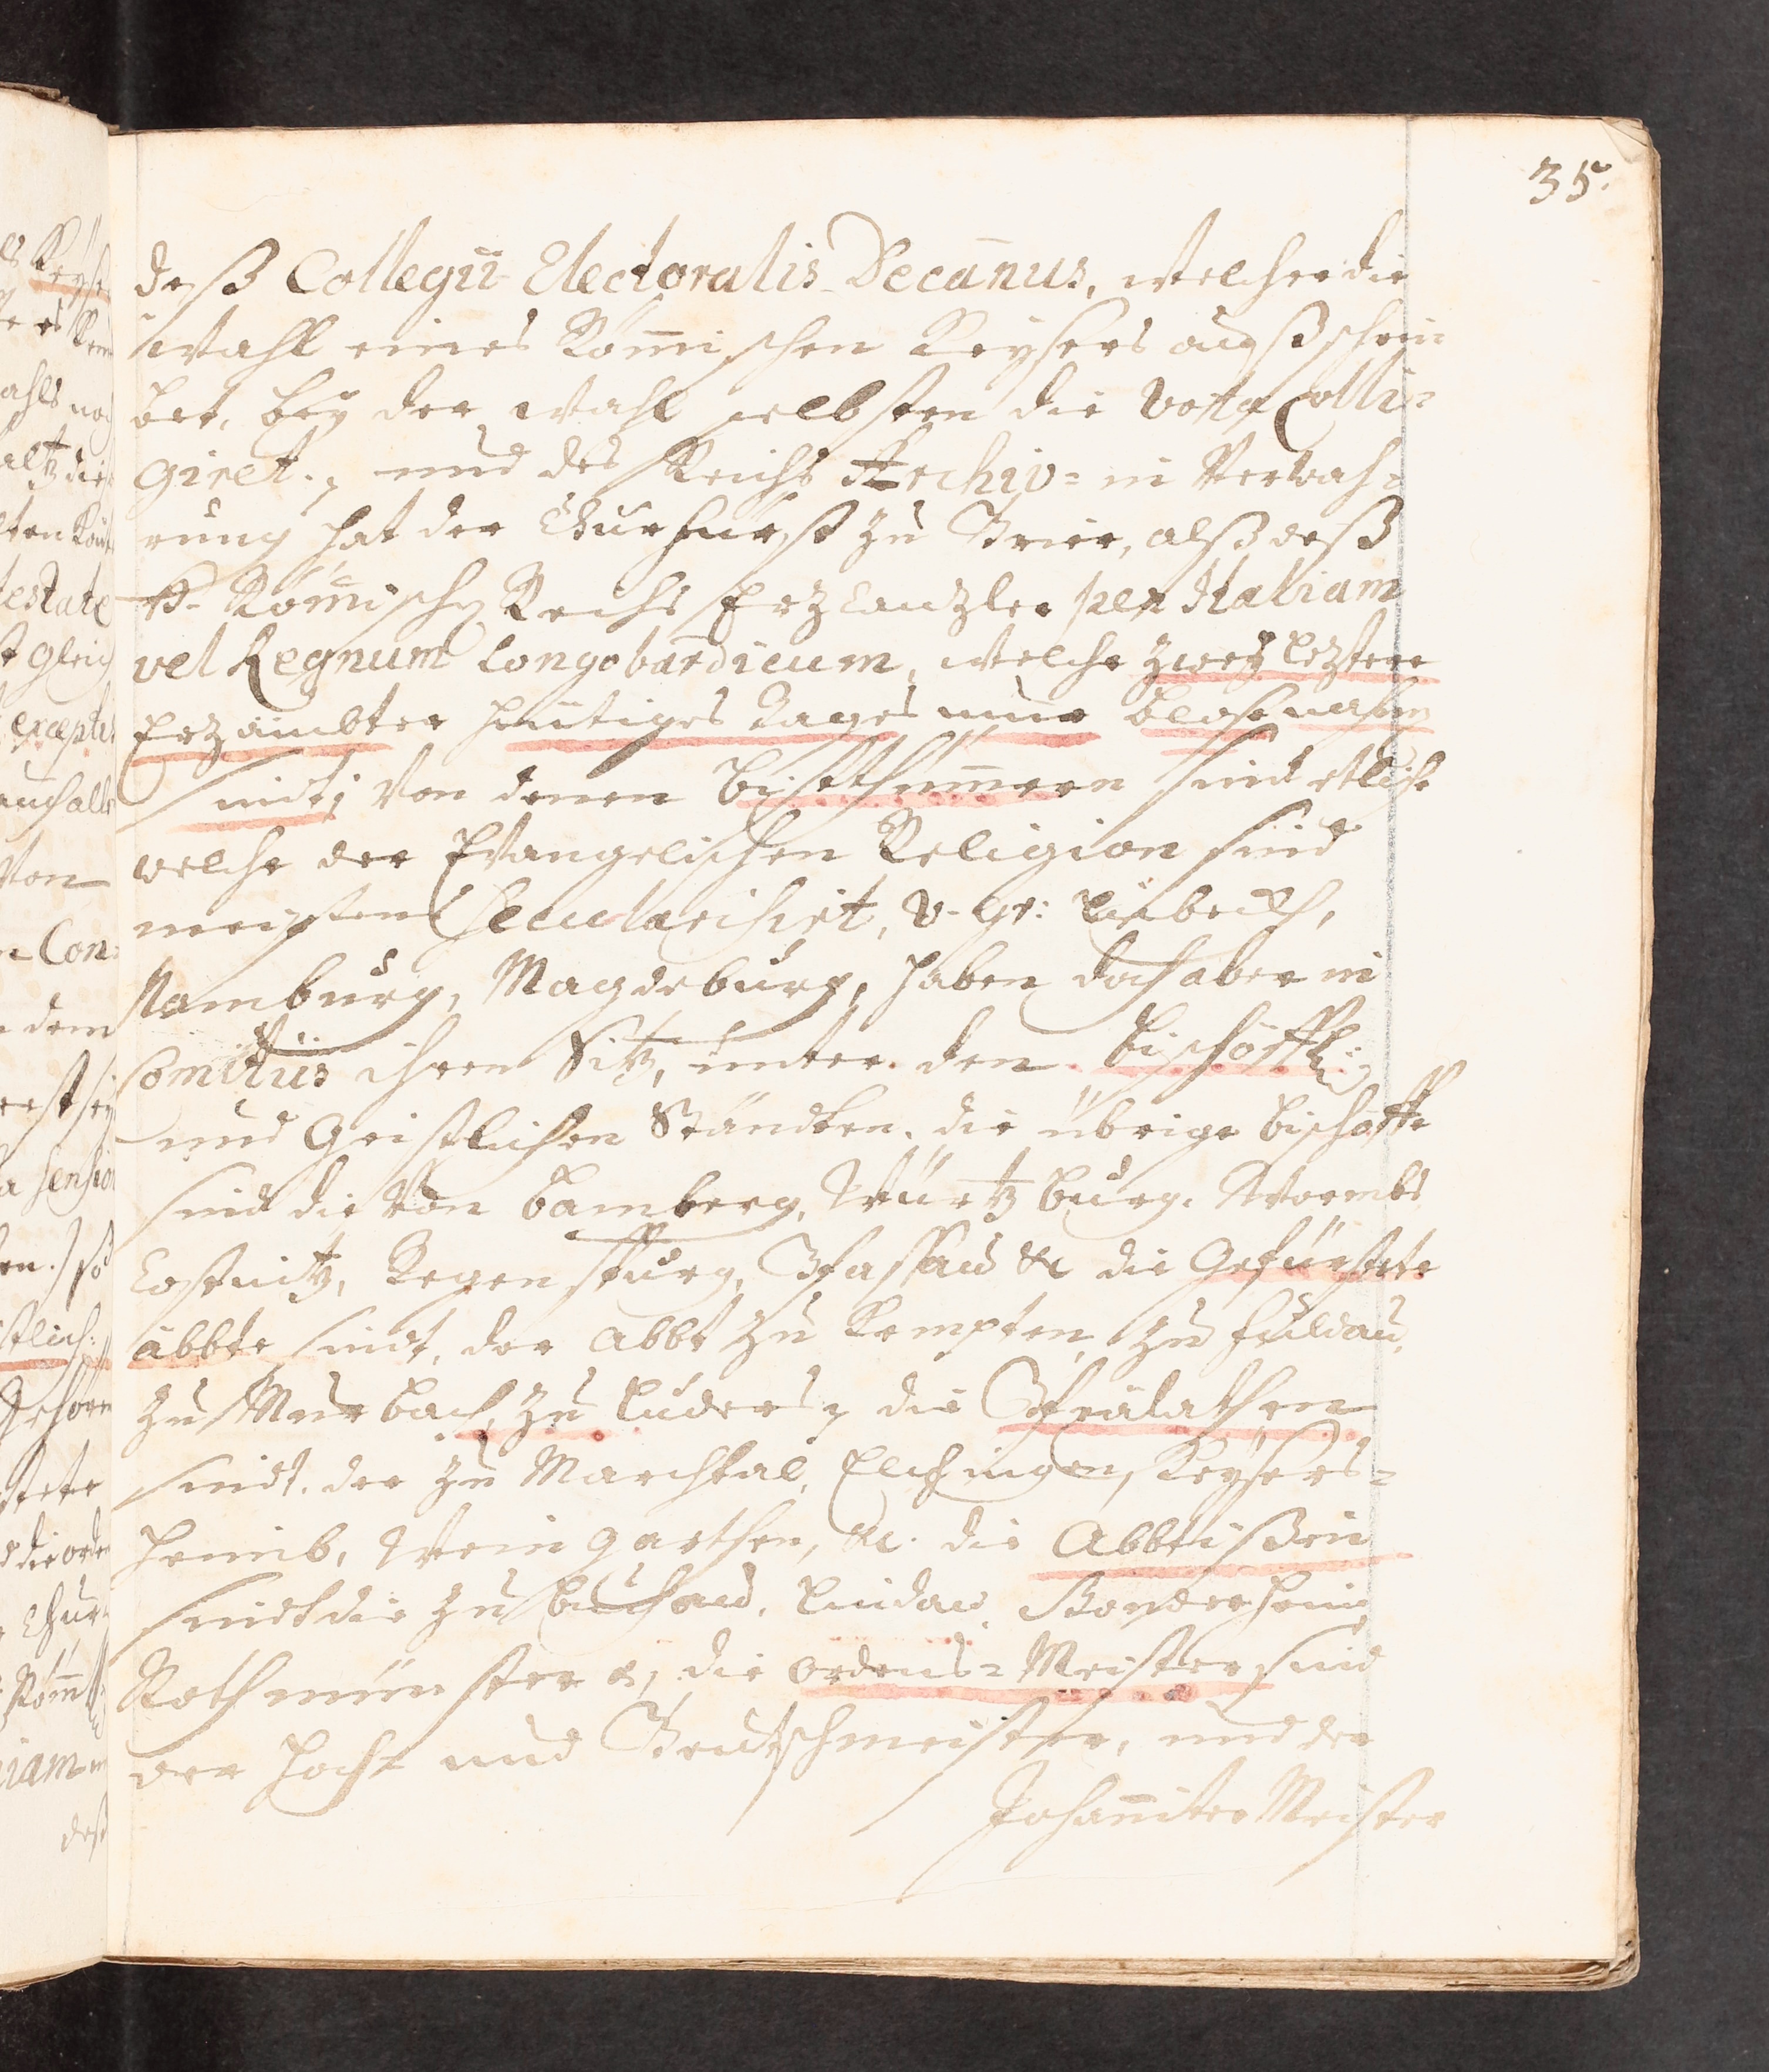 35.
deß Collegii Electoralis Decanus, welcher die
Wahl eines Römischen Keysers außschrei-
bet, bey der Wahl selbsten die vota Colli-
giret., und des Reichs Archiv= in Verwah=
rung hat der Churfürst zu Trier, alß deß
H. Römischen Reichs Erzcanzler per Italiam
vel Regnum Longobardicum, welche zwey leztere
Erzämbter heütiges Tages nur blose nahmen
sindt; Von denen Bisthümmern sind etliche
welche der Evangelischen Religion sind
meistens Secularisirt, v. gr: Lübeck,
Namburg, Magdeburg, haben doch aber in
Comitiis ihren Sitz, unter den Bischöffl:
und Geistlichen Ständten. die übrige Bischöffe
sind die Von Bamberg, Würtzburg, Wormbs
Costnitz, Regenspurg, Passau &c die Gefürstete
äbbte sindt, der Abbt zu Kempten, zu Fuldau,
zu Murbach, zu Luders, die Prälathen
sindt. der zu Marchtal, Elchingen, Keysers=
heimb, Weingarthen, &c. die Abbtißin
sindt die zu Buchau, Lindau,
Rothmünster &, die ordens=Meister sind
der Hoch= und Teutschmeister, und der
Johanniter Meister